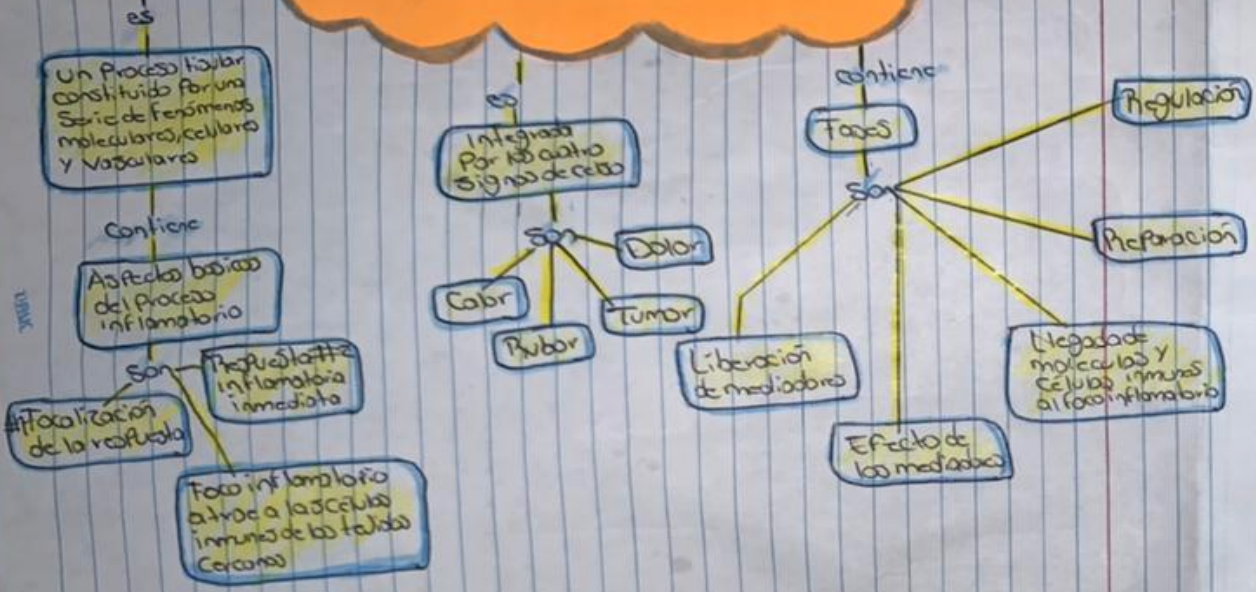 es
Un Proceso tisular
constituido Por una
Serie de Fenómenos
moleculares, celulares
y Vasculares
Contiene
Aspectos basicos
del Proceso
inflamatorio
Son
#1Focalización
de la respuesta
Respuesta #2
inflamatoria
inmediata
Foco inflamatorio
atrae a las celulas
inmunes de los tejidos
Cercanos
es
Integrada
Por los cuatro
signos de celso
Son
Calor
Rubor
Tumor
Dolor
contiene
Fases
Son
Liberación
de mediadores
Efecto de
los mediadores
Llegada de
moleculas y
Celulas inmunes
al foco inflamatorio
Reparación
Regulación